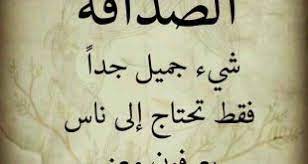 الصداقة
شيء جميل جداً
فقط تحتاج إلى ناس
يعرفون معنى